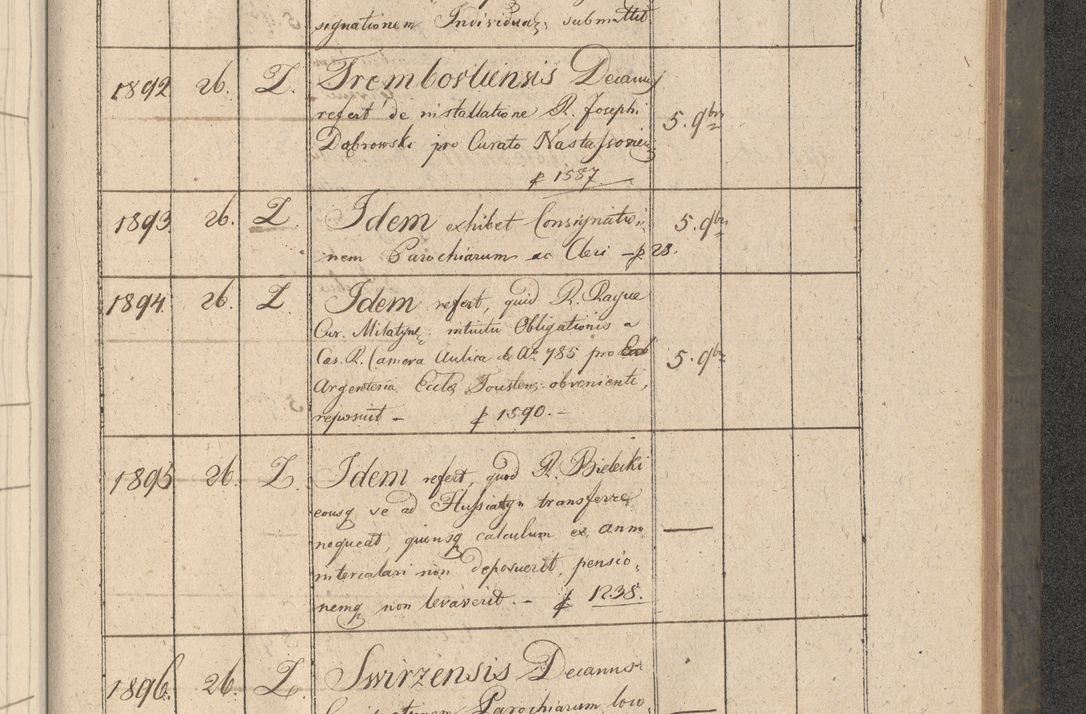 signationem Individual: submittit
1892 26. Z. Trembovliensis Decanus
refert de installatione R. Josephi
Dąbrowski pro Curato Nastassovien 5. 9br
f 1587
1893. 26. Z. Idem exhibet Consignatio- 5. 9br
nem Parochiarum ac Cleri – f 28.
1894. 26. Z. Idem refert, quid R. Rayue
Cur. Milatyn: intuitu Obligationis a
Cæs. R. Camera Aulica de Aº 785 pro 5. 9br
Argenteria Eccla Tousten: obvenienti,
reposuit – f 1590. –
1895 26. Z. Idem refert, quod R. Bielecki
eousq ve ad Hussiatyn transferre
nequeat, quinsq calculum ex anno —
intercalari non deposuerit, pensio-
nemq non levaverit. – f 1238.
1896. 26. Z. Swirzensis Decanus
Parochiarum loco